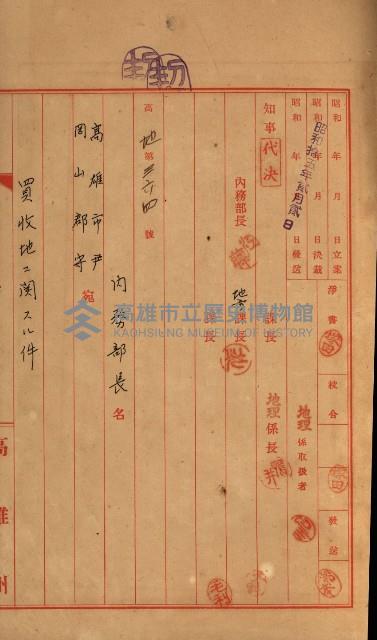 昭和 年 月 日立案
昭和 年 月 日決裁
昭和 年 月 日發送
昭和拾五年貳月貳日
淨書
校合
發送
地理係取扱者
知事 代決
內務部長
課長
地理係長
地理課長
課長
高地第三六四號
內務部長名
高雄市尹
岡山郡守
宛
買收地ニ関スル件
高雄州
高雄市立歷史博物館
KAOHSIUNG MUSEUM OF HISTORY
毛利